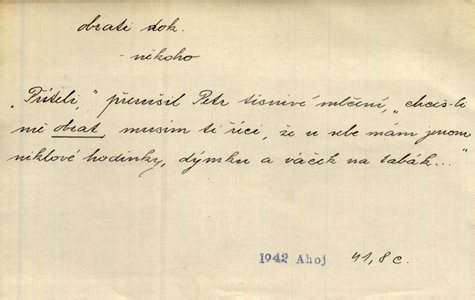 obrati dok.
- nikoho
„Příteli," přerušil Petr tísnivé mlčení, „chceš-li
mě obrat, musím ti říci, že u sebe mám jenom
niklové hodinky, dýmku a váček na tabák..."
1942 Ahoj 41, 8 c.